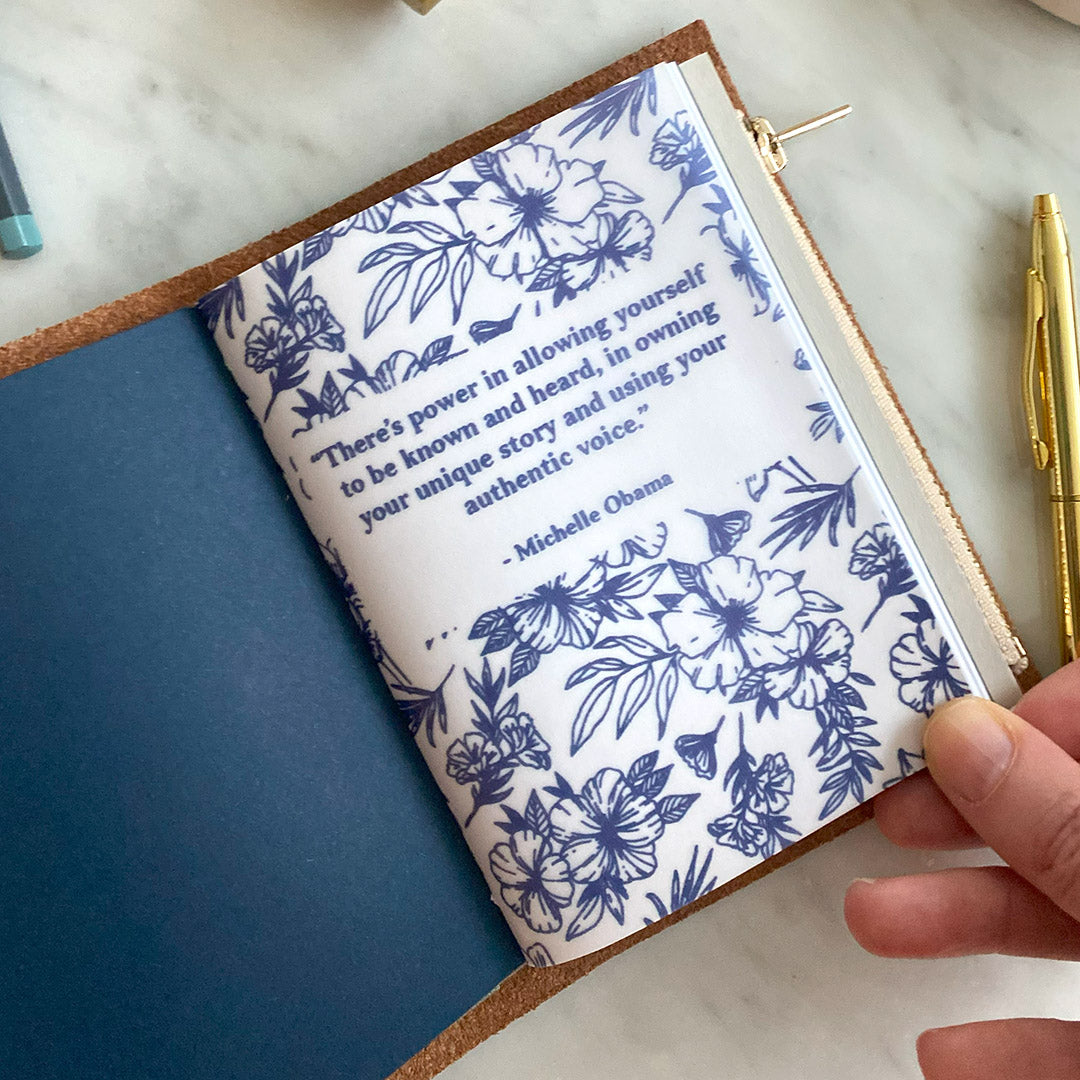 “There’s power in allowing yourself
to be known and heard, in owning
your unique story and using your
authentic voice.”
- Michelle Obama